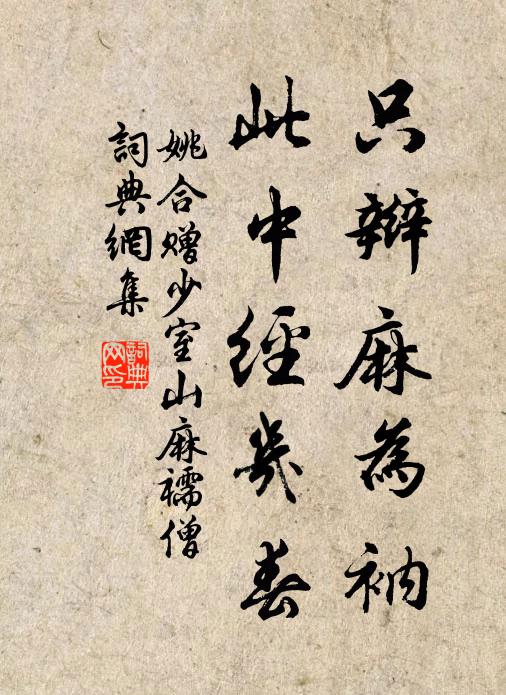 只辦麻為衲
此中經幾春
姚合贈少室山麻襦僧
詞典網集
詞典
网印